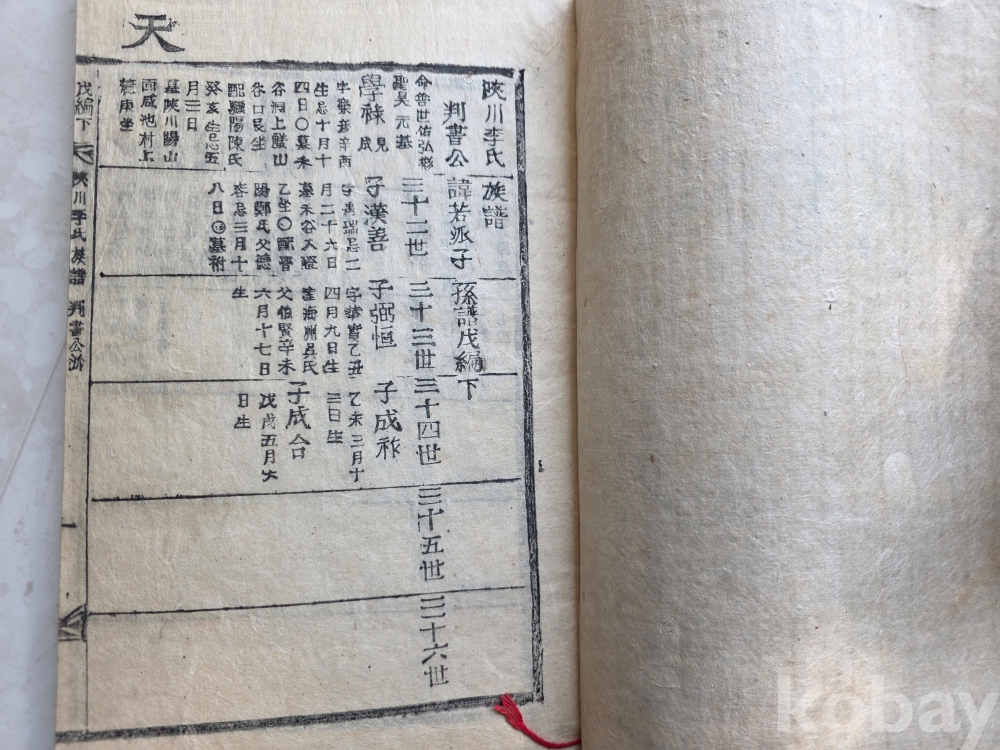 天
陜川李氏族譜
判書公諱若派子孫譜戊編下
命普世佑弘
聖昊元基
三十二世
三十三世
三十四世
三十五世
三十六世
學祿
見成
字樂彦辛酉
生忌十月十
四日〇墓未
谷洞上鰲山
谷口艮坐
配驪陽陳氏
癸亥生忌五
月三日
墓陜川陽山
面咸池村上
麓庚坐
子漢善
字禹瑞忌二
月二十六日
墓未谷入
乙坐〇配晋
陽鄭氏父德
容忌三月十
八日〇墓祔
子弼恒
字華賚乙丑
四月九日生
妻海州吳氏
父伯賢辛未
六月十七日
生
子成祚
乙未三月十
三日生
子成合
戊戌五月六
日生
戊編下
天
陜川李氏族譜
判書公派
一
kobay